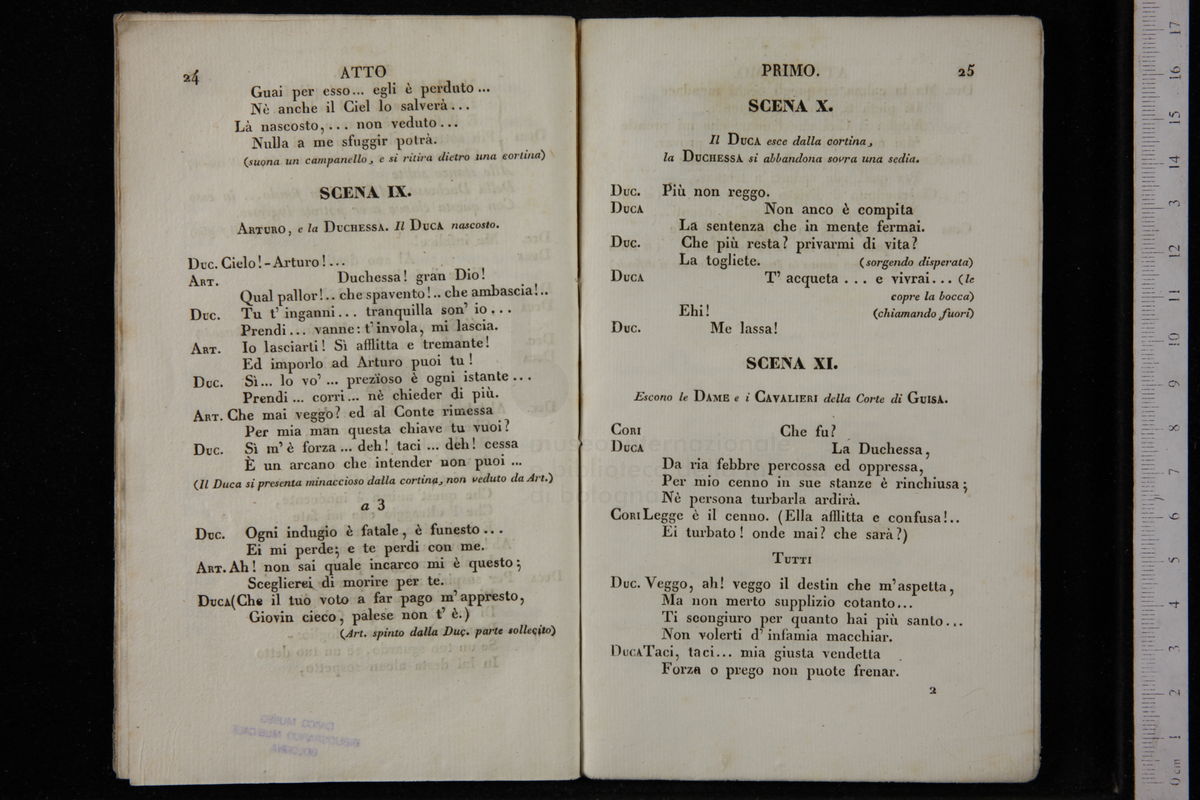 24 ATTO
Guai per esso... egli è perduto...
Nè anche il Ciel lo salverà...
Là nascosto,... non veduto...
Nulla a me sfuggir potrà.
(suona un campanello, e si ritira dietro una cortina)
SCENA IX.
ARTURO, e la DUCHESSA. Il DUCA nascosto.
DUC. Cielo! - Arturo!...
ART. Duchessa! gran Dio!
Qual pallor!.. che spavento!.. che ambascia!..
DUC. Tu t' inganni... tranquilla son' io...
Prendi... vanne: t'invola, mi lascia.
ART. Io lasciarti! Sì afflitta e tremante!
Ed imporlo ad Arturo puoi tu!
DUC. Sì... lo vo' ... prezïoso è ogni istante...
Prendi... corri... nè chieder di più.
ART. Che mai veggo? ed al Conte rimessa
Per mia man questa chiave tu vuoi?
DUC. Sì m' è forza... deh! taci ... deh! cessa
È un arcano che intender non puoi ...
(Il Duca si presenta minaccioso dalla cortina, non veduto da Art.)
a 3
DUC. Ogni indugio è fatale, è funesto...
Ei mi perde; e te perdi con me.
ART. Ah! non sai quale incarco mi è questo;
Sceglierei di morire per te.
DUCA (Che il tuo voto a far pago m' appresto,
Giovin cieco, palese non t' è.)
(Art. spinto dalla Duc. parte sollecito)
PRIMO. 25
SCENA X.
Il DUCA esce dalla cortina,
la DUCHESSA si abbandona sovra una sedia.
DUC. Più non reggo.
DUCA Non anco è compita
La sentenza che in mente fermai.
DUC. Che più resta? privarmi di vita?
La togliete. (sorgendo disperata)
DUCA T' acqueta ... e vivrai... (le
copre la bocca)
Ehi! (chiamando fuori)
DUC. Me lassa!
SCENA XI.
Escono le DAME e i CAVALIERI della Corte di GUISA.
CORI Che fu?
DUCA La Duchessa,
Da ria febbre percossa ed oppressa,
Per mio cenno in sue stanze è rinchiusa;
Nè persona turbarla ardirà.
CORI Legge è il cenno. (Ella afflitta e confusa!..
Ei turbato! onde mai? che sarà?)
TUTTI
DUC. Veggo, ah! veggo il destin che m'aspetta,
Ma non merto supplizio cotanto...
Ti scongiuro per quanto hai più santo...
Non volerti d' infamia macchiar.
DUCA Taci, taci... mia giusta vendetta
Forza o prego non puote frenar.
2